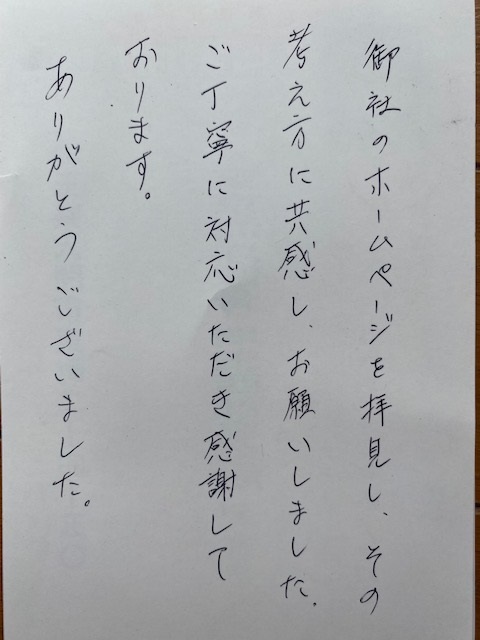 御社のホームページを拝見し、その
考え方に共感し、お願いしました。
ご丁寧に対応いただき感謝して
おります。
ありがとうございました。